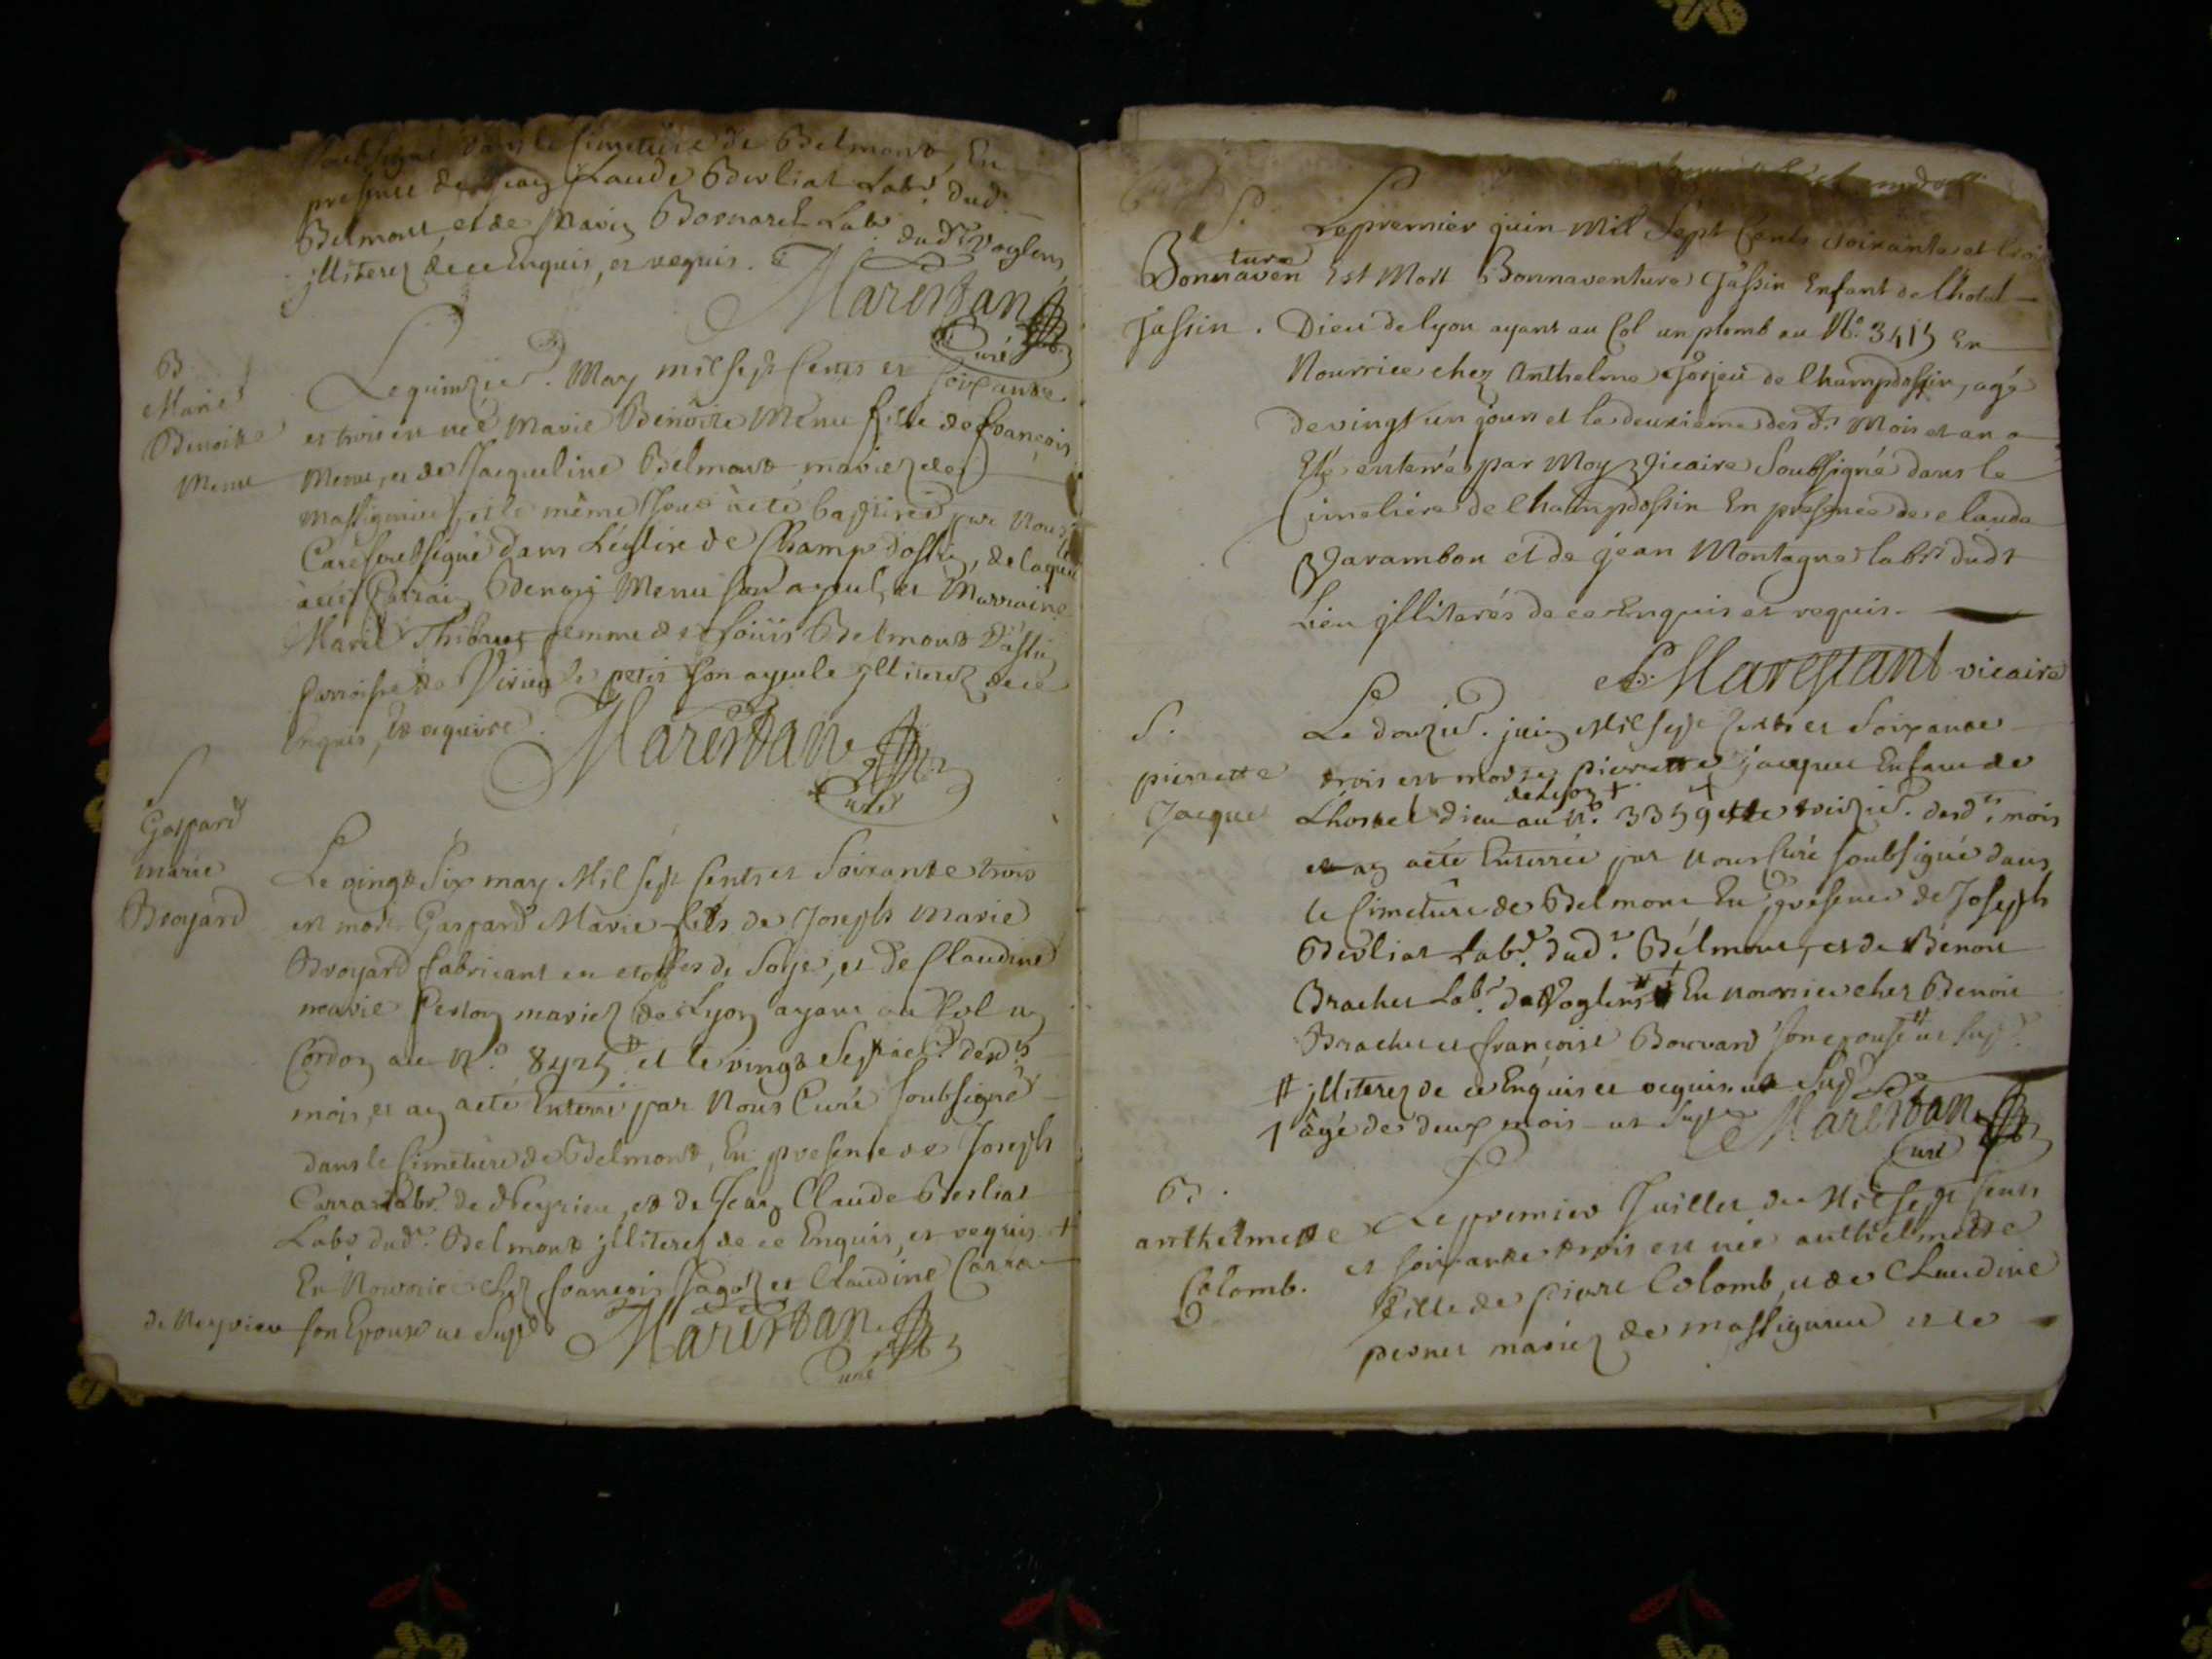 soubsigné dans le Cimetiere de Belmont, En
presence de Jean Claude Berliat Labr. dud.
Belmont, et de Marin Bornarel Labr dudt Voglens
jlliterez de ce Enquis, et requis.
Marestan
Curé
B
Marie
Benoitte
Menu
Le quinzie. May mil sept Cents et soixante
et trois est née Marie Benoite Menu fille de françois
Menu, et de Jacqueline Belmont mariez de
Massignieu, et le même Jour a eté baptisée par Nous
Curé soubsigné dans L'église de Champdossin, de laquelle
a eté Parrain Benoit Menu son ayeul, et Marraine
Marie Thibaut femme de Loüis Belmont
parroisse de Virieu le petit son ayeule jlliterez de ce
Enquis, et requis.
Marestan
Curé
S
Gaspard
marie
Broyard
Le vingt Six may Mil sept Cents et Soixante trois
est mort Gaspard Marie fils de Joseph Marie
Broyard fabricant en etoffes de Soye, et de Claudine
marie Peston mariez de Lyon ayant au Col un
Cordon au N°. 8425 # et le vingt Septie. desdts
mois, et an a eté Enterré par Nous Curé soubsigné
dans le Cimetiere de Belmont, En presence de Joseph
Carra Labr. de Neyrieu, et de Jean Claude Berliat
Labr dudt. Belmont jlliterez de ce Enquis, et requis +
En Nourrice chez françois et Claudine Carra
de Neyrieu son Epouse ut Supra
Marestan
Curé
S.
Bonnaventure
Jassin.
Le premier juin Mil Sept Cents soixante et trois
Est Mort Bonnaventure Jassin Enfant de lhotel
Dieu de lyon ayant au Col un plomb au N°. 3415 En
Nourrice chez Anthelme Jorjeu de Champdossin, agé
de vingt un jours et le deuxieme des dts Mois et an a
Eté enterré par Moy Vicaire Soubsigné dans le
Cimetiere de Champdossin En présence de claude
Varambon et de jean Montagne labrs dudt
Lieu jlliterés de ce Enquis et requis.
Marestant vicaire
S.
pierrette
Jacque
Le douzie. juin Mil sept Cents et Soixante
trois est morte pierrette jacque Enfant de
L'hostel dieu de Lyon + au N°. 3359 et le treizie. desdts. mois
et an a eté Enterrée par nous Curé soubsigné dans
le Cimetiere de Belmont En presence de Joseph
Berliat Labr. dudt. Bélmont, et de Benoit
Brachet Labr. de Voglens # En nourrice chez Benoit
Brachet et françoise Bouvard son epouse ut supr.
# jlliterez de ce Enquis et requis ut Supra
+ âgé de deux mois ut Supra
Marestan
Curé
B.
anthelmette
Colomb.
Le premier Juillet Mil sept Cents
et soixante trois est née anthelmette
fille de pierre Colomb, et de Claudine
pernet mariez de massignieu et le